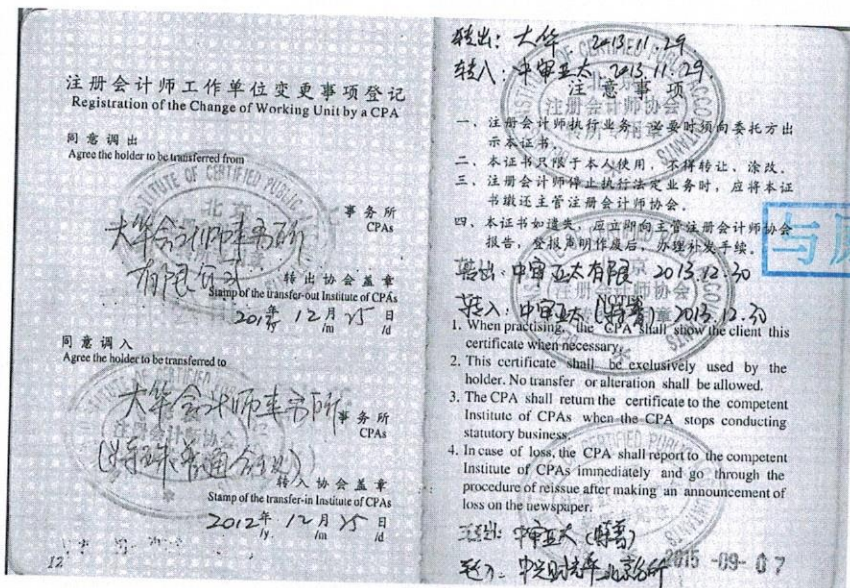 注册会计师工作单位变更事项登记
Registration of the Change of Working Unit by a CPA
同意调出
Agree the holder to be transferred from
大华会计师事务所
有限公司
事务所
CPAs
转出协会盖章
Stamp of the transfer-out Institute of CPAs
2012年 12月 25日
/y /m /d
同意调入
Agree the holder to be transferred to
大华会计师事务所
(特殊普通合伙)
事务所
CPAs
转入协会盖章
Stamp of the transfer-in Institute of CPAs
2012年 12月 25日
/y /m /d
12
转出: 大华 2013.11.29
转入: 中审亚太 2013.11.29.
注意事项
一、注册会计师执行业务，必要时须向委托方出
示本证书。
二、本证书只限于本人使用，不得转让、涂改。
三、注册会计师停止执行法定业务时，应将本证
书缴还主管注册会计师协会。
四、本证书如遗失，应立即向主管注册会计师协会
报告，登报声明作废后，办理补发手续。
转出: 中审亚太有限 2013.12.30
转入: 中审亚太 (特普) 2013.12.30
NOTES
1. When practising, the CPA shall show the client this
certificate when necessary.
2. This certificate shall be exclusively used by the
holder. No transfer or alteration shall be allowed.
3. The CPA shall return the certificate to the competent
Institute of CPAs when the CPA stops conducting
statutory business.
4. In case of loss, the CPA shall report to the competent
Institute of CPAs immediately and go through the
procedure of reissue after making an announcement of
loss on the newspaper.
转出: 中审亚太 (特普)
转入: 中兴财光华北京分所
2015-09-07
与原